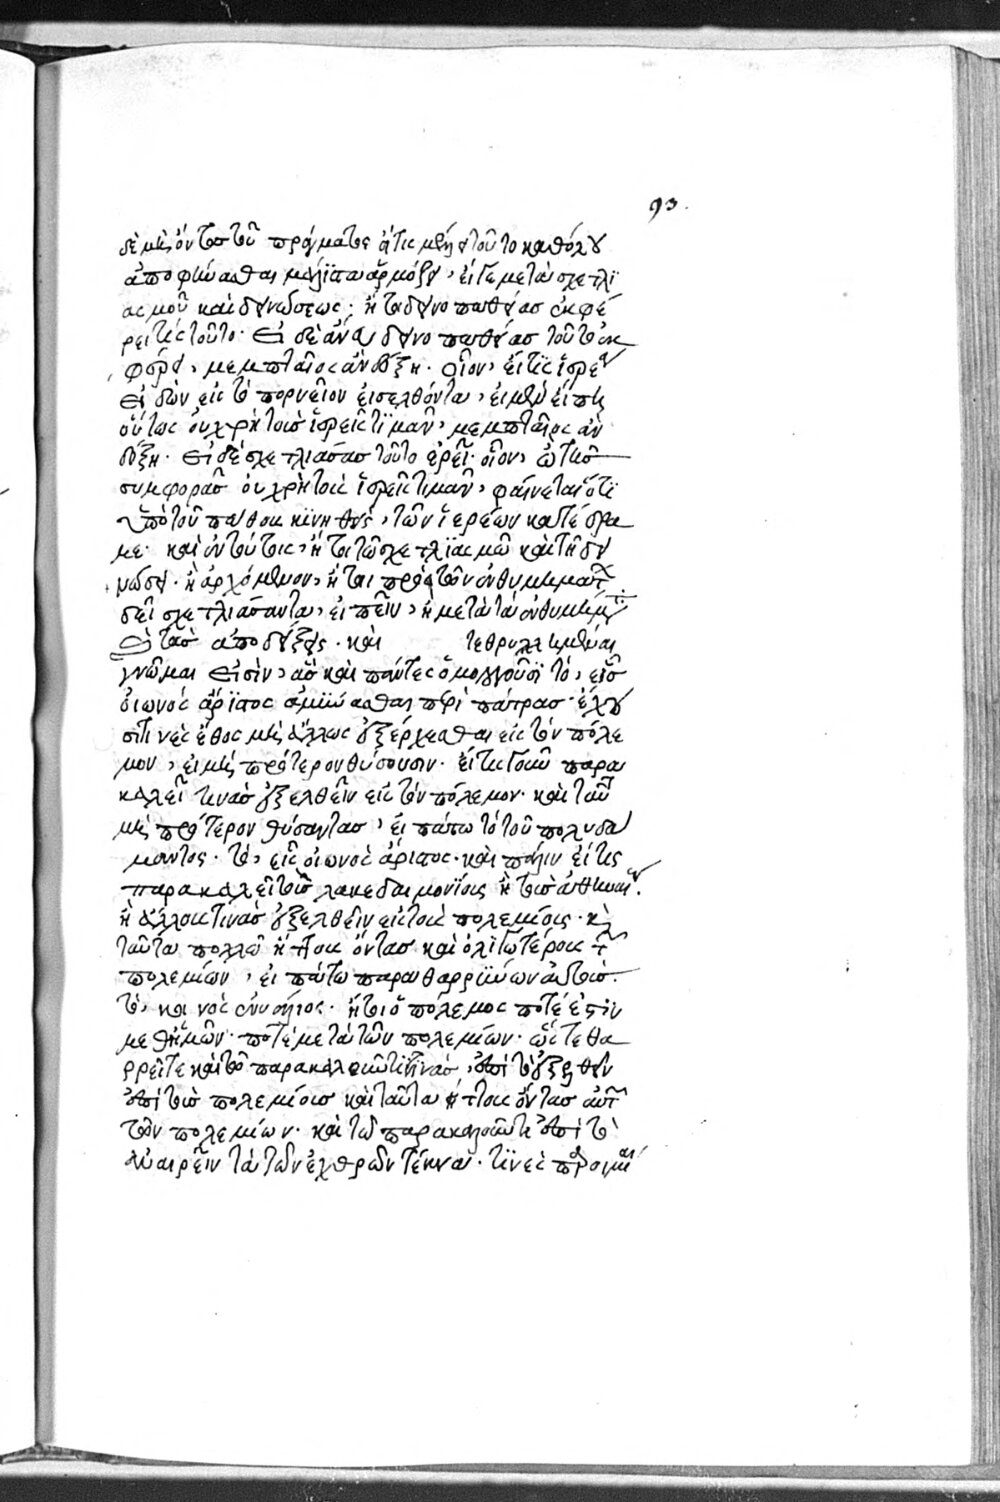 93.
δὲ μὴ ὄντος τοῦ πράγματος τοῦτο καθόλου
ἀποφήνασθαι μάλιστα ἁρμόζει, εἴτε μετὰ σχετλι
ασμοῦ καὶ δεινώσεως· ἤτοι δεινοπαθείας ἐκφέ
ρει τίς τοῦτο· εἰ δὲ ἄνευ δεινοπαθείας τοῦτο ἐκ
φέρει, μεμπταῖος ἂν δόξῃ. οἷον, εἴ τις ἱερέα
ἰδὼν εἰς τὸ πορνεῖον εἰσελθόντα, εἰ μὲν εἴπῃ
οὕτως οὐ χρὴ τοὺς ἱερεῖς τιμᾶν, μεμπταῖος ἂν
δόξῃ. εἰ δὲ σχετλιάσας τοῦτο ἐρεῖ· οἷον, ὢ τῆς
συμφορᾶς οὐ χρὴ τοὺς ἱερεῖς τιμᾶν, φαίνεται ὅτι
ὑπὸ τοῦ πάθους κινηθεὶς, τῶν ἱερέων κατέδρα
με· καὶ ἐν τούτοις, ἤτοι τῷ σχετλιασμῷ καὶ τῇ δει
νώσει· ἢ ἀρχόμενον, ἤτοι πρὸ τῶν ἐνθυμημάτων
δεῖ σχετλιάσαντα, εἰπεῖν, ἢ μετὰ τὰ ἐνθυμήματα
τὰς ἀποδείξεις. καὶ τεθρυλλημέναι
γνῶμαι εἰσὶν, ἃς καὶ πάντες ὁμολογοῦσι τὸ, εἷς
οἰωνὸς ἄριστος ἀμύνασθαι περὶ πάτρας· ἔχου
σι τινὲς ἔθος μὴ ἄλλως ἐξέρχεσθαι εἰς τὸν πόλε
μον, εἰ μὴ πρότερον θύσουσιν. εἴ τις γοῦν παρα
καλεῖ τινὰς ἐξελθεῖν εἰς τὸν πόλεμον· καὶ ταῦτα
μὴ πρότερον θύσαντας, εἰπάτω τὸ τοῦ πολυδά
μαντος· τὸ, εἷς οἰωνὸς ἄριστος. καὶ πάλιν εἴ τις
παρακαλεῖ τοὺς λακεδαιμονίους ἢ τοὺς ἀθηναίους.
ἢ ἄλλους τινὰς ἐξελθεῖν εἰς τοὺς πολεμίους· καὶ
ταῦτα πολλῷ ἥττους ὄντας καὶ ὀλιγωτέρους τῶν
πολεμίων, εἰπάτω παραθαρρύνων αὐτοὺς
τὸ, κοινὸς ἐνυάλιος· ἤτοι ὁ πόλεμος ποτέ ἐστιν
μεθ' ἡμῶν· ποτὲ μετὰ τῶν πολεμίων· ὥστε θα
ρρεῖτε καὶ τῷ παρακαλοῦντι τινὰς, ἐπὶ τὸ ἐξελθεῖν
ἐπὶ τοὺς πολεμίους καὶ ταῦτα ἥττους ὄντας αὐτῶν
τῶν πολεμίων. καὶ τῷ παρακαλοῦντι ἐπὶ τὸ
ἀναιρεῖν τὰ τῶν ἐχθρῶν τέκνα. τινὲς παροιμίαι